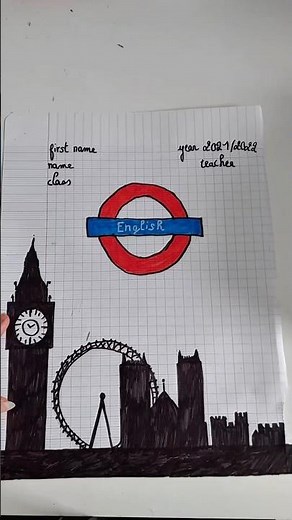 first name
name
class
year 2021/2022
teacher
English